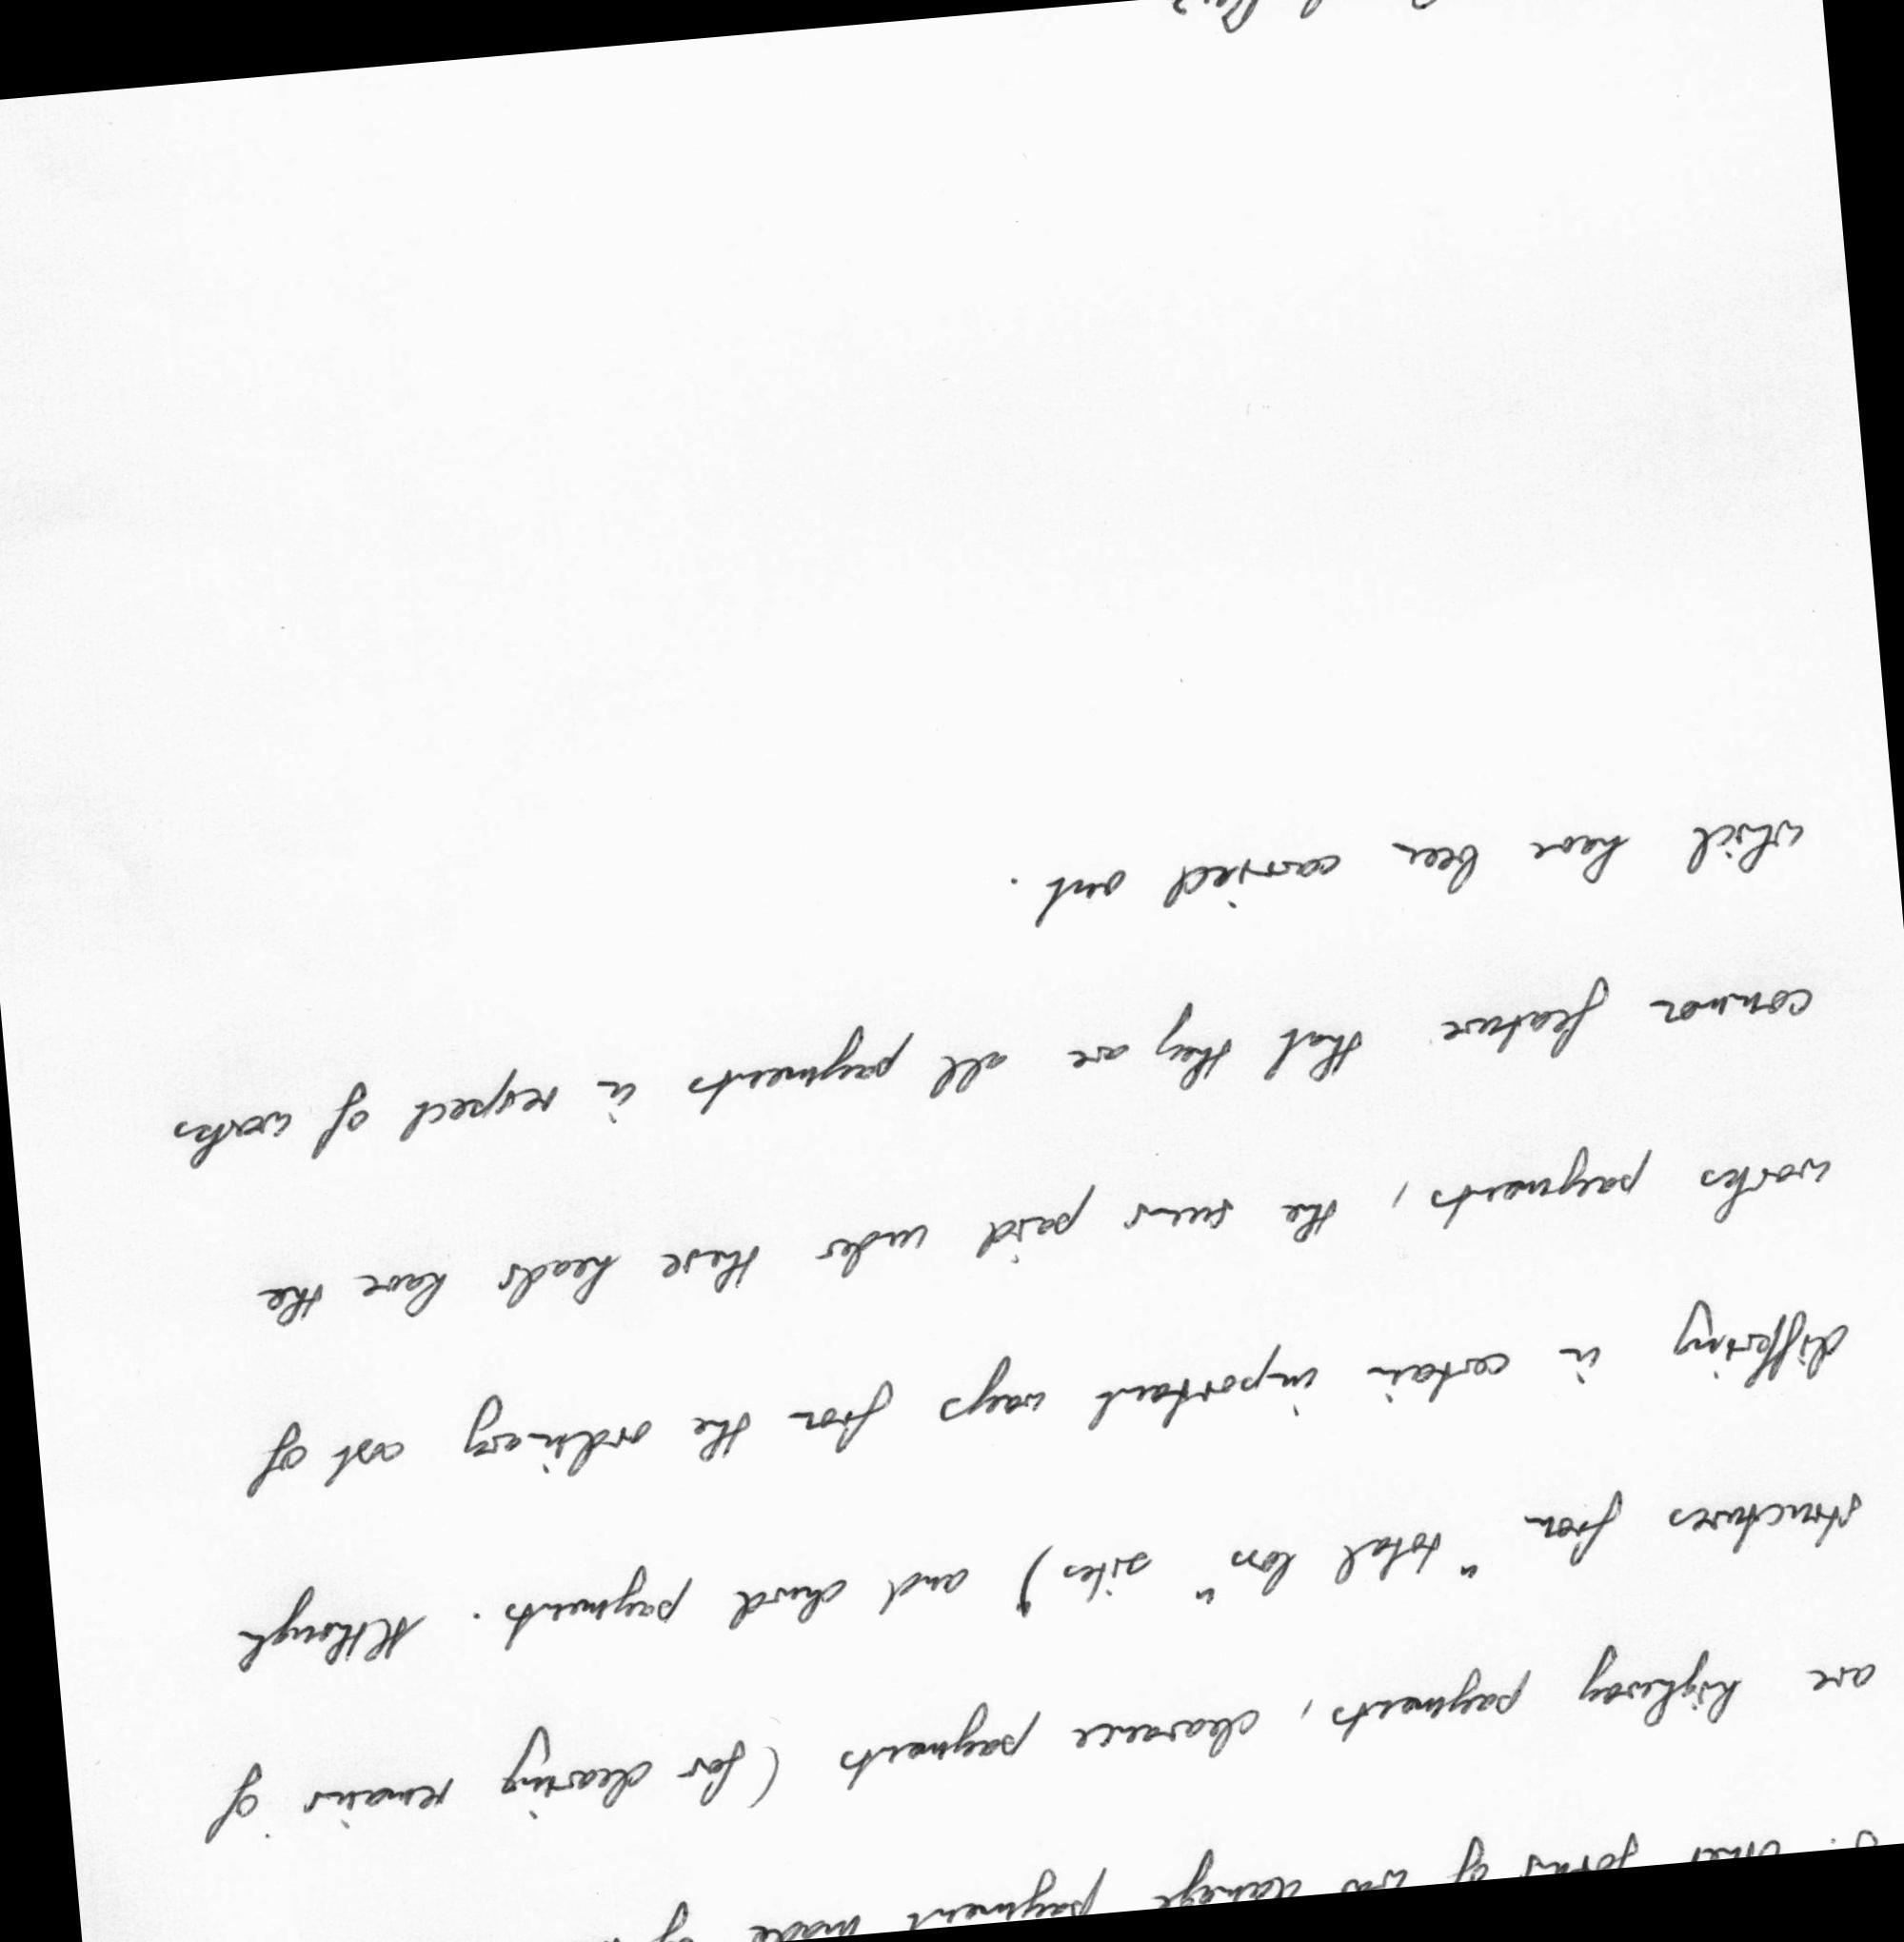 Other forms of war damage payment made by
are highway payments, clearance payments (for clearing remains of
structures from "total loss" sites) and church payments. Although
differing in certain important ways from the ordinary cost of
works payments, the sums paid under these heads have the
common feature that they are all payments in respect of works
which have been carried out.